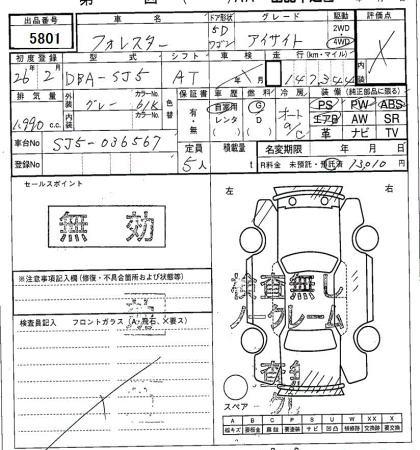 出品番号 車名 ドア形状 グレード 駆動 評価点
5801 フォレスター 5D ワゴン アイサイト 2WD 4WD
初度登録 型式 シフト 車検 走行(km・マイル)
26年2月 DBA-SJ5 AT 147,344
排気量 外装 グレー カラーNo. 61K 色替 保証書 車歴 燃料 冷房 装備(純正部品に限る)
1,990 c.c. 内装 カラーNo. 有・無 自家用 レンタ ( ) G D ( ) オート A/C PS PW ABS
エアB AW SR
革 ナビ TV
車台No SJ5-036567 定員 積載量 名変期限 年 月 日
登録No 5人 t R料金 未預託・預託済 13,010円
セールスポイント
左 右
無効
※注意事項記入欄(修復・不具合箇所および状態等)
検査無し
ノークレーム
検査員記入 フロントガラス(A・飛石、X要ス)
スペア
A B C P S U W X XX X
線キズ 要板金 腐蝕 要塗装 サビ 凹凸 補修跡 交換跡 要交換